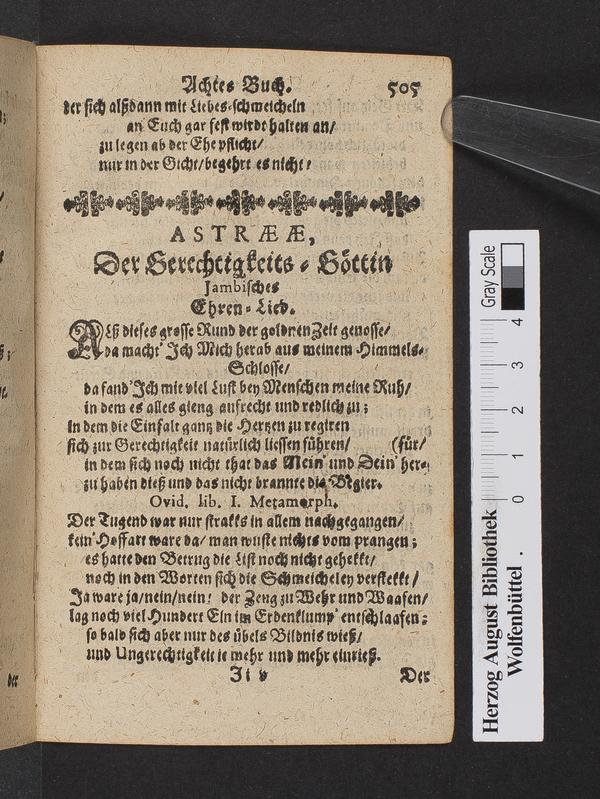 Achtes Buch. 505
der sich alßdann mit Liebes-schweicheln
an Euch gar fest wirdt halten an/
zu legen ab der Ehe pflicht/
nur in der Gicht/begehrt es nicht!
ASTRÆÆ,
Der Gerechtigkeits-Göttin
Jambisches
Ehren-Lied.
Alß dieses grosse Rund der goldnen Zeit genosse/
da macht' Jch Mich herab aus meinem Himmels-
Schlosse/
da fand' Jch mit viel Lust bey Menschen meine Ruh/
in dem es alles gieng aufrecht und redlich zu;
In dem die Einfalt gantz die Hertzen zu regiren
sich zur Gerechtigkeit natürlich liessen führen/ (für/
in dem sich noch nicht that das Mein' und Dein' her-
zu haben dieß und das nicht brannte die Begier.
Ovid. lib. I. Metamorph.
Der Tugend war nur strakks in allem nachgegangen/
kein' Hoffart ware da/ man wuste nichts vom prangen;
es hatte den Betrug die List noch nicht gehekkt/
noch in den Worten sich die Schmeicheley verstekkt/
Ja ware ja/nein/nein! der Zeug zu Wehr und Waafen/
lag noch viel Hundert Eln im Erdenklump' entschlaafen;
so bald sich aber nur des übels Bildnis wieß/
und Ungerechtigkeit ie mehr und mehr einrieß.
Ji v Der
der
Herzog August Bibliothek
Wolfenbüttel .
Gray Scale
0 1 2 3 4